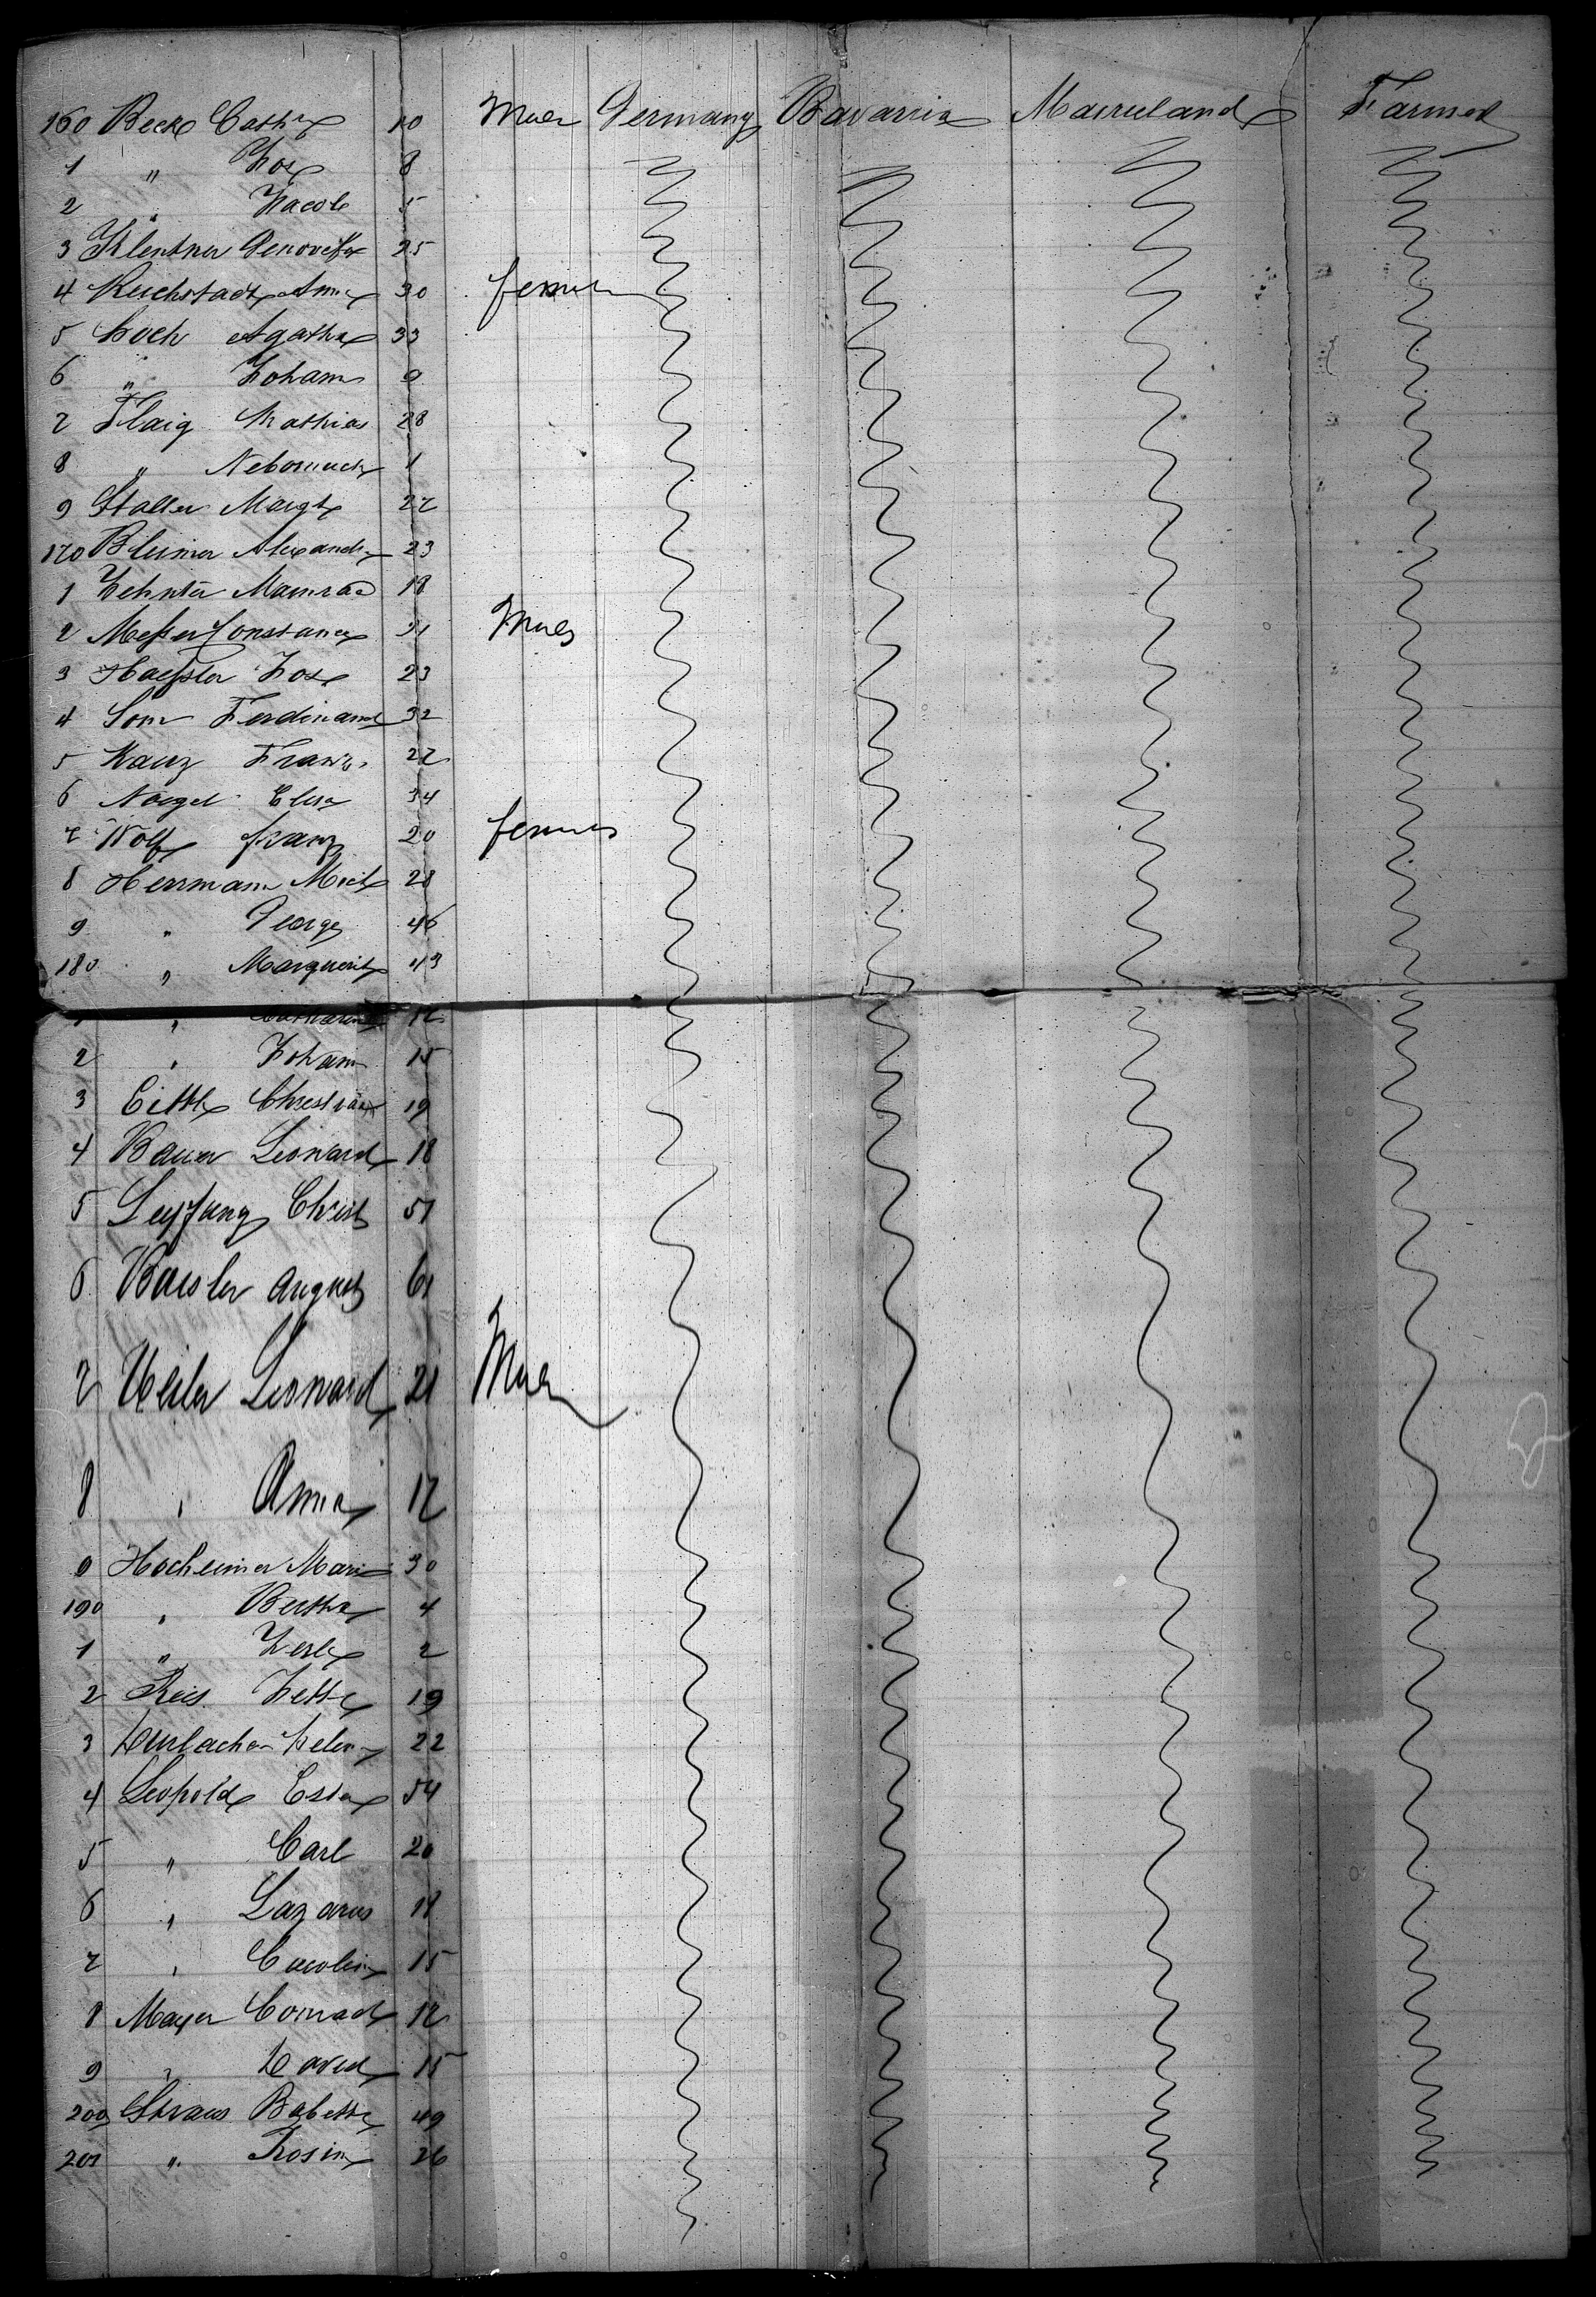 160 Beck Cath. 10 Male Germany Bavarria Marieland Farmer
1 " Jos. 8
2 " Jacob 5
3 Klentner Genovefa 25
4 Reichstadt Anna 30 female
5 Hoch Agatha 33
6 " Johann 9
7 Flaig Mathias 28
8 " Nebomuck 1
9 Staller Margt 22
170 Bleimer Alexand. 23
1 Zehnter Mainrad 18
2 Meßer Constanz 31 Males
3 Haeßler Jos. 23
4 Som Ferdinand 32
5 Kauz Franz. 22
6 Noegel Elise 34
7 Wolf Franz 20 females
8 Herrmann Mich 28
9 " George 46
180 " Marguerit 43
1 " Catharina 12
2 " Johann 15
3 Christian 19
4 Bauer Leonard 18
5 Christ 51
6 August 61
7 Leonard 21 Male
8 " Anna 17
9 Hocheimer Marie 30
190 " Bertha 4
1 " 2
2 Reis Jette 19
3 Durlacher Helen 22
4 Leopold Ester 54
5 " Carl 20
6 " Lazarus 18
7 " Carolin 15
8 Mayer Conrad 12
9 " David 15
200 Straus Babette 49
201 " Rosine 26